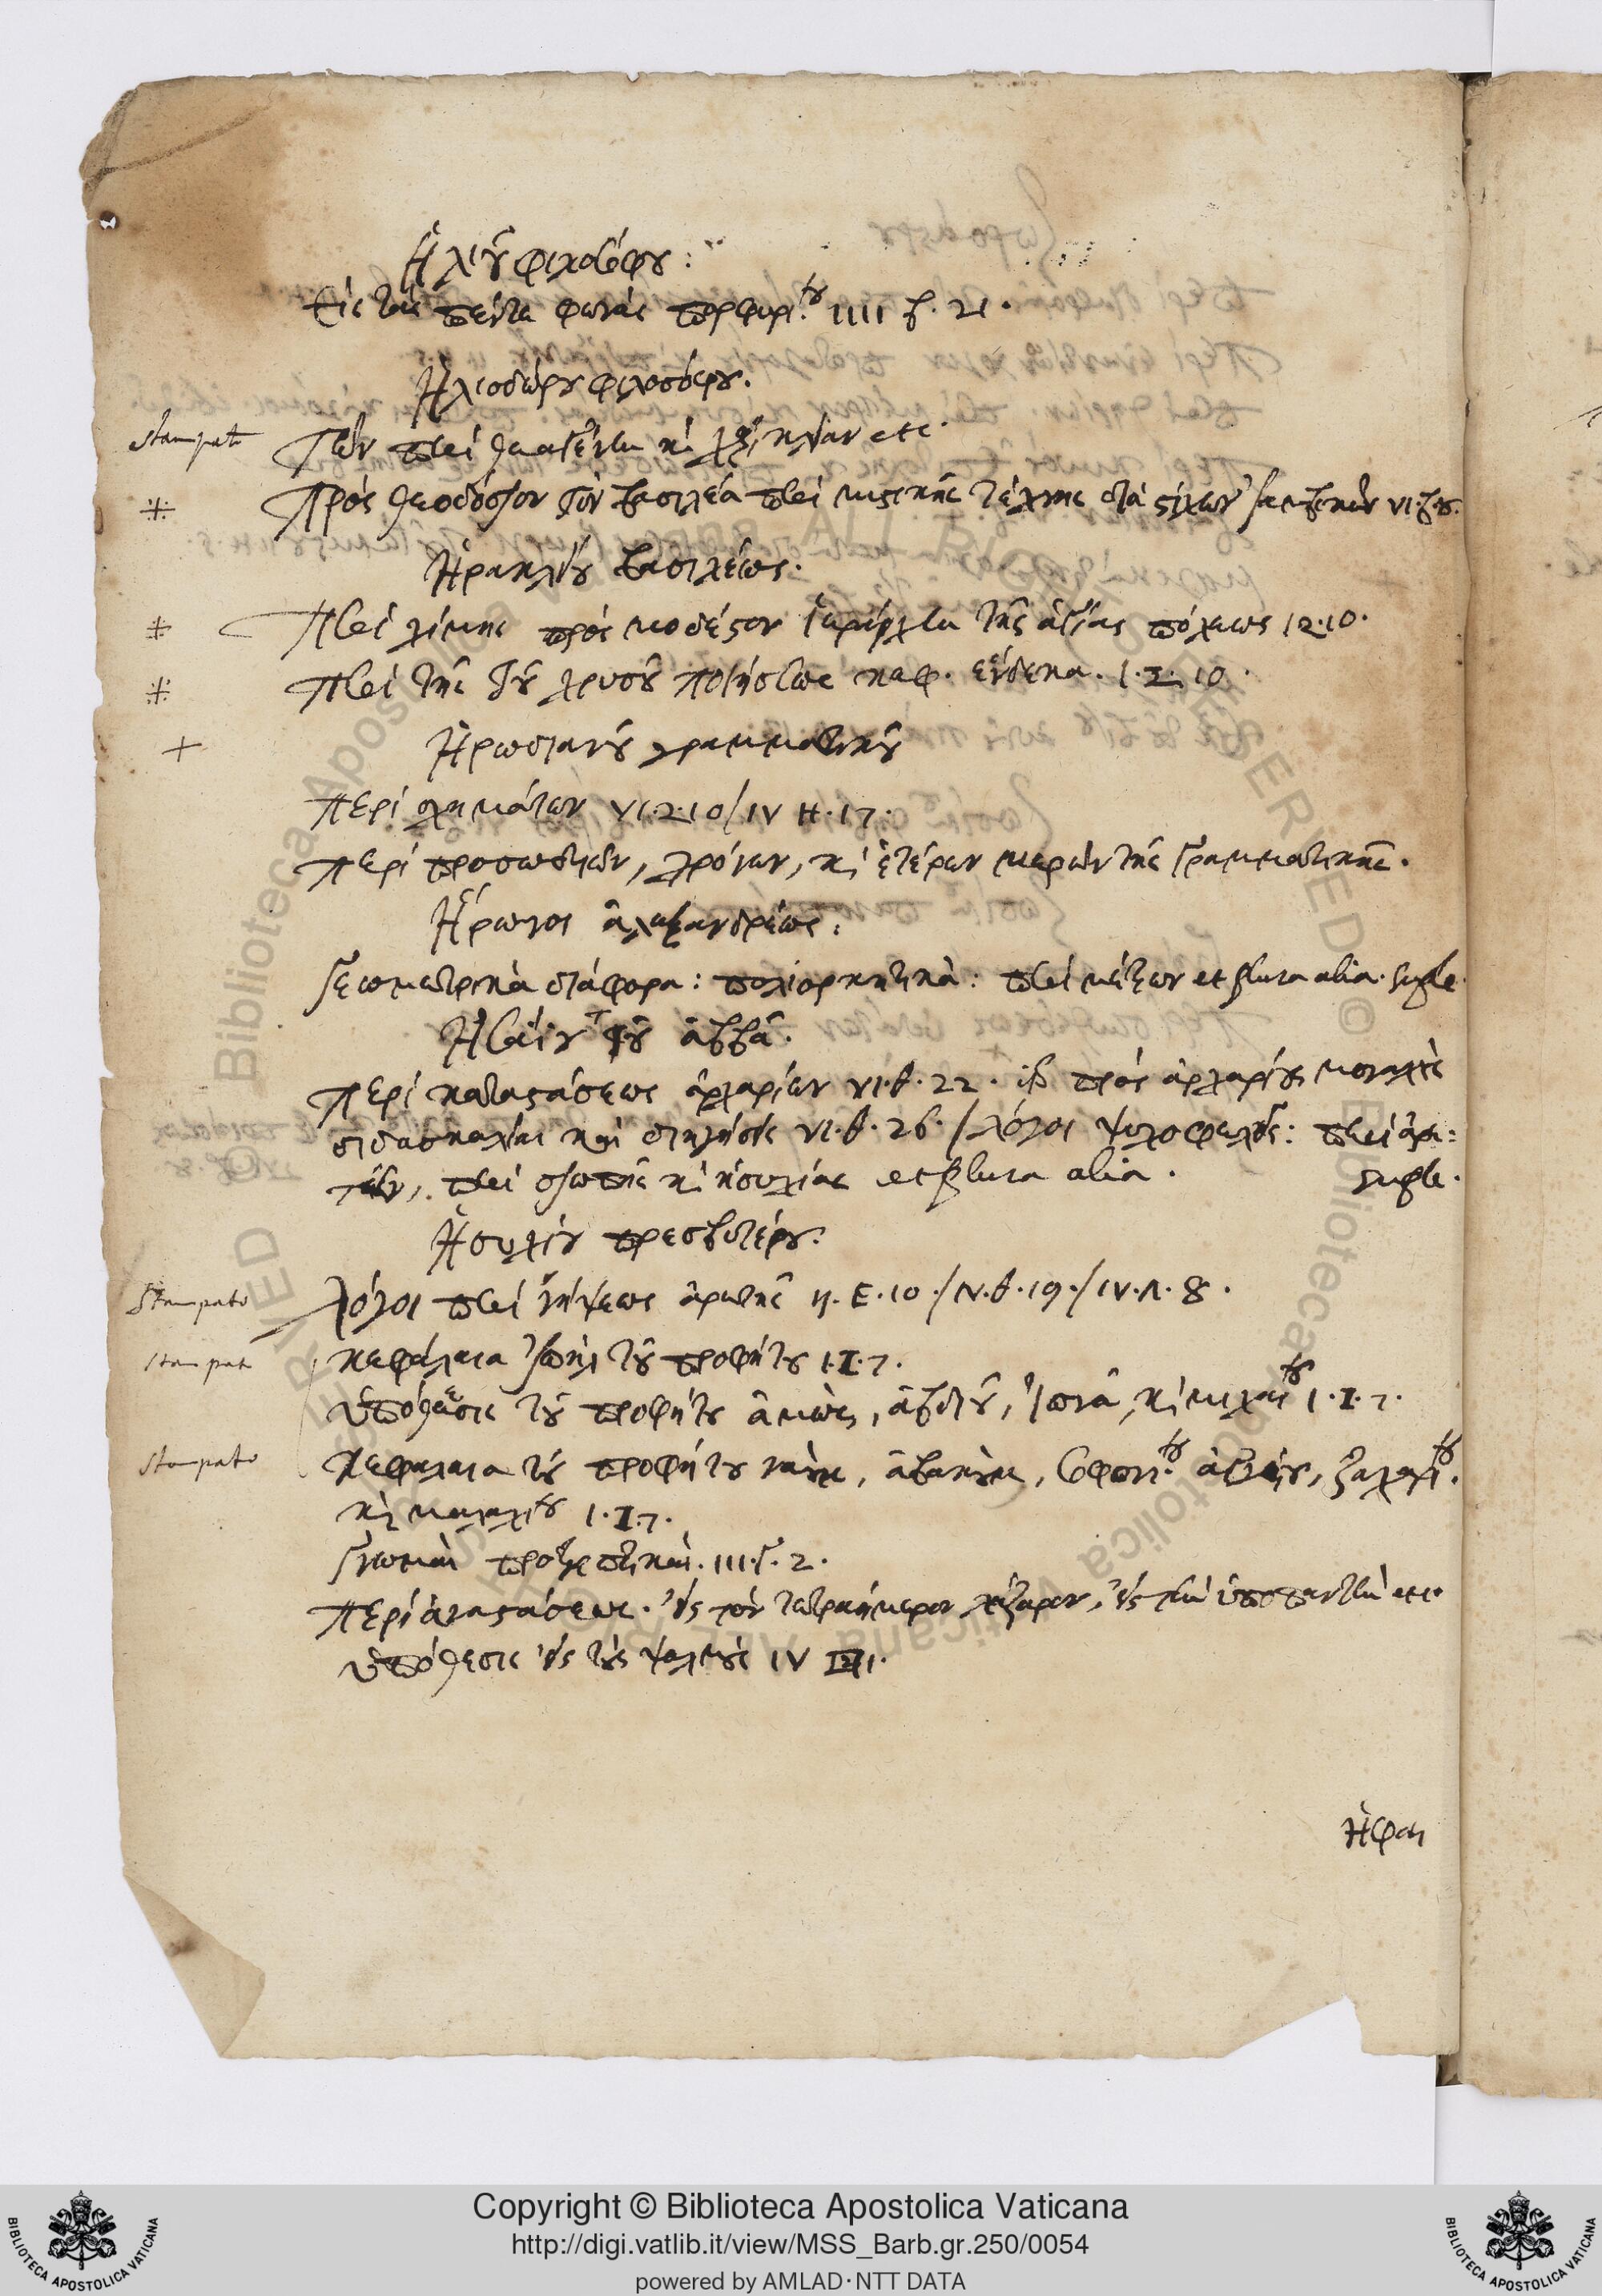 Ἡλιοῦ φιλοσόφου:
Εἰς τὰς πέντε φωνὰς πορφυρίου IIII β. 21.
Ἡλιοδώρου φιλοσόφου.
stampato
Τῶν περὶ θεαγένην κὶ etc.
Πρὸς θεοδόσιον τὸν βασιλέα περὶ μυστικῆς τέχνης διὰ στίχων ἰαμβικῶν VI.
Ἡρακλείου βασιλέως.
Περὶ πρὸς μόδεστον ἱεράρχην τῆς ἁγίας πόλεως 12.10.
Περὶ τῆς τοῦ χρυσοῦ ποιήσεως κεφ. ἕνδεκα. I.Σ.10.
+ Ἡρωδιανοῦ γραμματικοῦ
Περὶ σχημάτων VI.2.10/IV H.17.
Περὶ προσωδιῶν, χρόνων, κὶ ἑτέρων μερῶν τῆς γραμματικῆς.
Ἥρωνος ἀλεξανδρέως.
Γεωμετρικὰ διάφορα: πολιορκητικὰ: περὶ μέτρων et plura alia. supple.
Ἡσαΐου τοῦ ἀββᾶ.
Περὶ καταστάσεως ἀρχαρίων VI.θ.22. πρὸς ἀρχαρίους μοναχοὺς
διδασκαλίαι καὶ διηγήσεις VI.θ.26./λόγοι ψυχοφελεῖς: περὶ ἀρε=
τῶν, περὶ σιωπῆς κὶ ἡσυχίας et plura alia. supple.
Ἡσυχίου πρεσβυτέρου.
stampato λόγοι περὶ νήψεως ἀρετῆς II.E.10./IV.θ.19./IV.Λ.8.
stampato κεφάλαια ἰωὴλ τοῦ προφήτου I.I.7.
ὑπόθεσις τοῦ προφήτου ἀμὼς, ἀβδιοῦ, ἰωνᾶ, κὶ μιχαίου I.I.7.
stampato Κεφάλαια τοῦ προφήτου ναοὺμ, ἀβακοὺμ, σοφονίου ἀγγαίου, ζαχαρίου.
κὶ μαλαχίου I.I.7.
Γνωμαὶ προτρεπτικαὶ. III.Γ.2.
Περὶ ἀναστάσεως. εἰς τὸν τετραήμερον λάζαρον, εἰς τὴν ὑποπαντὴν etc.
ὑπόθεσις εἰς τοὺς ψαλμοὺς IV
Ἡφαι
Copyright © Biblioteca Apostolica Vaticana
http://digi.vatlib.it/view/MSS_Barb.gr.250/0054
powered by AMLAD·NTT DATA
BIBLIOTECA APOSTOLICA VATICANA
BIBLIOTECA APOSTOLICA VATICANA